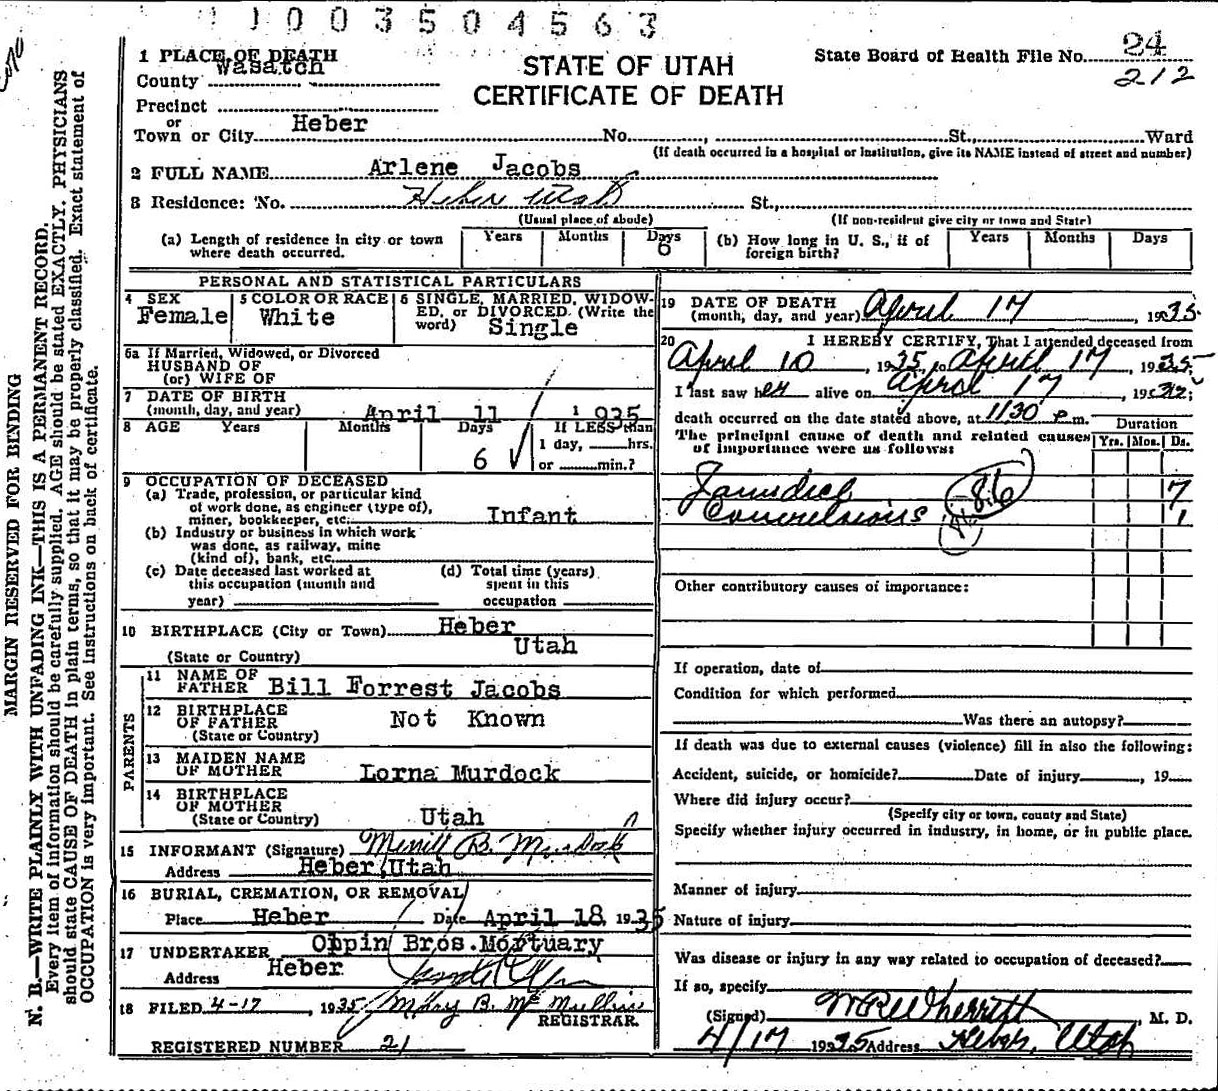 1003504563
1 PLACE OF DEATH
County Wasatch
Precinct
or
Town or City Heber No. , St., Ward
(If death occurred in a hospital or institution, give its NAME instead of street and number)
STATE OF UTAH
CERTIFICATE OF DEATH
State Board of Health File No. 24
212
2 FULL NAME Arlene Jacobs
3 Residence: No. Heber Utah St.,
(Usual place of abode) (If non-resident give city or town and State)
(a) Length of residence in city or town where death occurred. Years Months Days 6
(b) How long in U. S., if of foreign birth? Years Months Days
PERSONAL AND STATISTICAL PARTICULARS
4 SEX Female
5 COLOR OR RACE White
6 SINGLE, MARRIED, WIDOW-
ED, or DIVORCED. (Write the
word) Single
6a If Married, Widowed, or Divorced
HUSBAND OF
(or) WIFE OF
7 DATE OF BIRTH
(month, day, and year) April 11 1935
8 AGE Years Months Days 6
If LESS than
1 day, hrs.
or min.?
9 OCCUPATION OF DECEASED
(a) Trade, profession, or particular kind
of work done, as engineer (type of),
miner, bookkeeper, etc. Infant
(b) Industry or business in which work
was done, as railway, mine
(kind of), bank, etc.
(c) Date deceased last worked at
this occupation (month and
year)
(d) Total time (years)
spent in this
occupation
10 BIRTHPLACE (City or Town) Heber
(State or Country) Utah
PARENTS
11 NAME OF
FATHER Bill Forrest Jacobs
12 BIRTHPLACE
OF FATHER Not Known
(State or Country)
13 MAIDEN NAME
OF MOTHER Lorna Murdock
14 BIRTHPLACE
OF MOTHER
(State or Country) Utah
15 INFORMANT (Signature) Merrill B. Murdock
Address Heber, Utah
16 BURIAL, CREMATION, OR REMOVAL
Place Heber Date April 18, 1935
17 UNDERTAKER Olpin Bros. Mortuary
Address Heber
18 FILED 4-17, 1935 Mary B. McMullin
REGISTRAR.
REGISTERED NUMBER 21
19 DATE OF DEATH
(month, day, and year) April 17, 1935
20 I HEREBY CERTIFY, That I attended deceased from
April 10, 1935, to April 17, 1935;
I last saw her alive on April 17, 1935;
death occurred on the date stated above, at 11/30 p.m.
The principal cause of death and related causes
of importance were as follows:
Duration
Yrs. Mos. Ds.
Jaundice 7
Convulsions 1
86
Other contributory causes of importance:
If operation, date of
Condition for which performed
Was there an autopsy?
If death was due to external causes (violence) fill in also the following:
Accident, suicide, or homicide? Date of injury , 19
Where did injury occur?
(Specify city or town, county and State)
Specify whether injury occurred in industry, in home, or in public place.
Manner of injury
Nature of injury
Was disease or injury in any way related to occupation of deceased?
If so, specify
(Signed) W R Wherritt, M. D.
4/17 1935 Address Heber, Utah
MARGIN RESERVED FOR BINDING
N. B.—WRITE PLAINLY WITH UNFADING INK—THIS IS A PERMANENT RECORD.
Every item of information should be carefully supplied. AGE should be stated EXACTLY. PHYSICIANS
should state CAUSE OF DEATH in plain terms, so that it may be properly classified. Exact statement of
OCCUPATION is very important. See instructions on back of certificate.